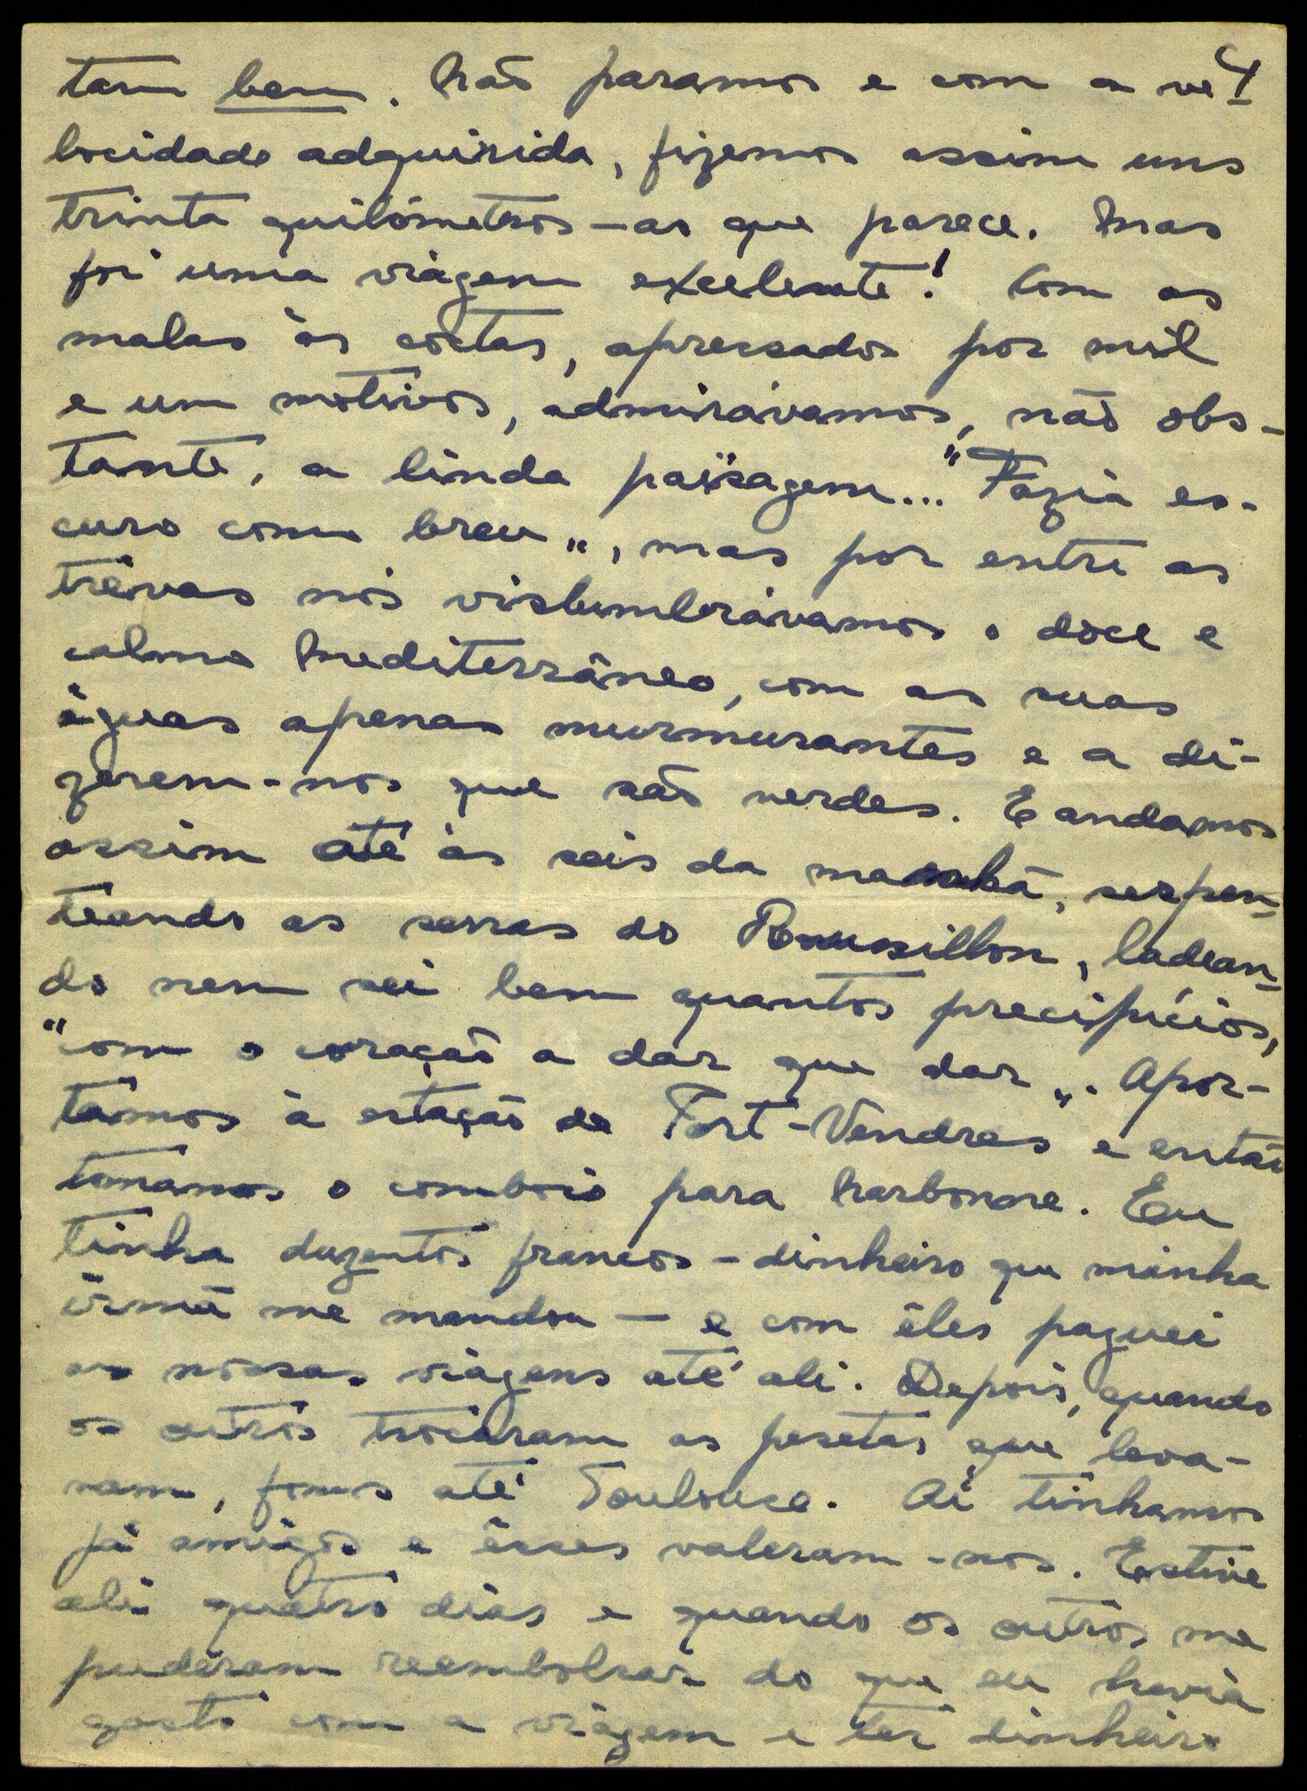 4
tam bem. Não paramos e com a ve-
locidade adquirida, fizemos assim uns
trinta quilómetros - ao que parece. Mas
foi uma viagem excelente! Com as
malas às costas, apressados por mil
e um motivos, admirávamos, não obs-
tante, a linda païsagem... "Fazia es-
curo como breu", mas por entre as
trévas nós vislumbrávamos o doce e
calmo Mediterrâneo, com as suas
águas apenas murmurantes e a di-
zerem-nos que são verdes. E andamos
assim até às seis da manhã, serpen-
teando as serras do Roussillon, ladean-
do nem sei bem quantos precipícios,
"com o coração a dar que dar". Apor-
támos à estação de Port-Vendres e então
tomámos o comboio para Narbonne. Eu
tinha duzentos francos - dinheiro que minha
irmã me mandou - e com êles paguei
as nossas viagens até ali. Depois, quando
os outros trocaram as pesetas que leva-
vam, fomos até Toulouse. Aí tinhamos
já amigos e êsses valeram-nos. Estive
ali quatro dias e quando os outros me
puderam reembolsar do que eu havia
gasto com a viagem e ter dinheiro